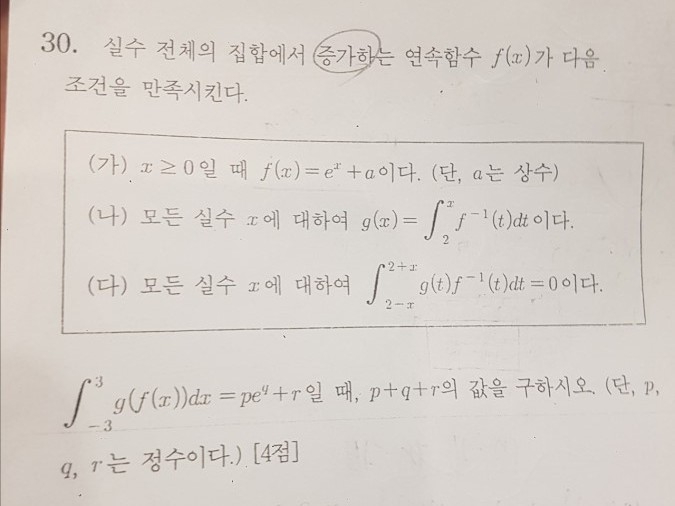 30. 실수 전체의 집합에서 증가하는 연속함수 f(x)가 다음
조건을 만족시킨다.
(가) x ≥ 0일 때 f(x) = eˣ + a이다. (단, a는 상수)
(나) 모든 실수 x에 대하여 g(x) = ∫₂ˣ f⁻¹(t)dt이다.
(다) 모든 실수 x에 대하여 ∫_{2-x}^{2+x} g(t)f⁻¹(t)dt = 0이다.
∫_{-3}^{3} g(f(x))dx = pe^q + r일 때, p+q+r의 값을 구하시오. (단, p,
q, r는 정수이다.) [4점]